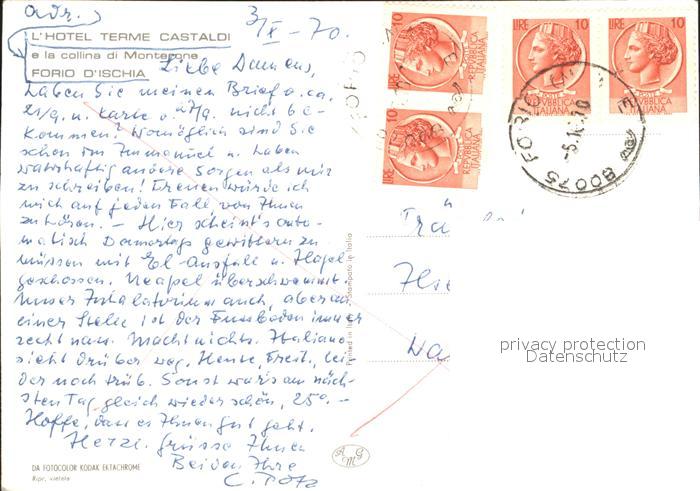 adr.
3/X - 70.
L'HOTEL TERME CASTALDI
e la collina di Monterone
FORIO D'ISCHIA
Liebe Damens,
haben Sie meinen Brief v. ca.
21/9. u. Karte v. 27/9. nicht be-
kommen? Womöglich sind Sie
schon im Immanuel u. haben
wahrhaftig andere Sorgen als mir
zu schreiben! Freuen würde ich
mich auf jeden Fall von Ihnen
zu hören. — Hier scheint's auto-
matisch Donnertags gewittern zu
müssen mit El-Ausfall u. Hagel
geschossen. Neapel überschwemmt.
Unser Inhalatorium auch, aber an
einer Stelle ist der Fussboden immer
recht nass. Macht nichts. Italiano
sieht drüber weg. Heute, Freit., lei-
der noch trüb. Sonst war's am näch-
sten Tag gleich wieder schön, 25°. —
Hoffe, dass es Ihnen gut geht.
Herzl. Grüsse Ihnen
Beiden Ihre
C.
DA FOTOCOLOR KODAK EKTACHROME
Ripr. vietata
AMG
LIRE 10
POSTE
REPVBBLICA
ITALIANA
LIRE 10
POSTE
REPVBBLICA
ITALIANA
LIRE 10
POSTE
REPVBBLICA
ITALIANA
LIRE 10
POSTE
REPVBBLICA
ITALIANA
80075 FORIO
privacy protection
Datenschutz